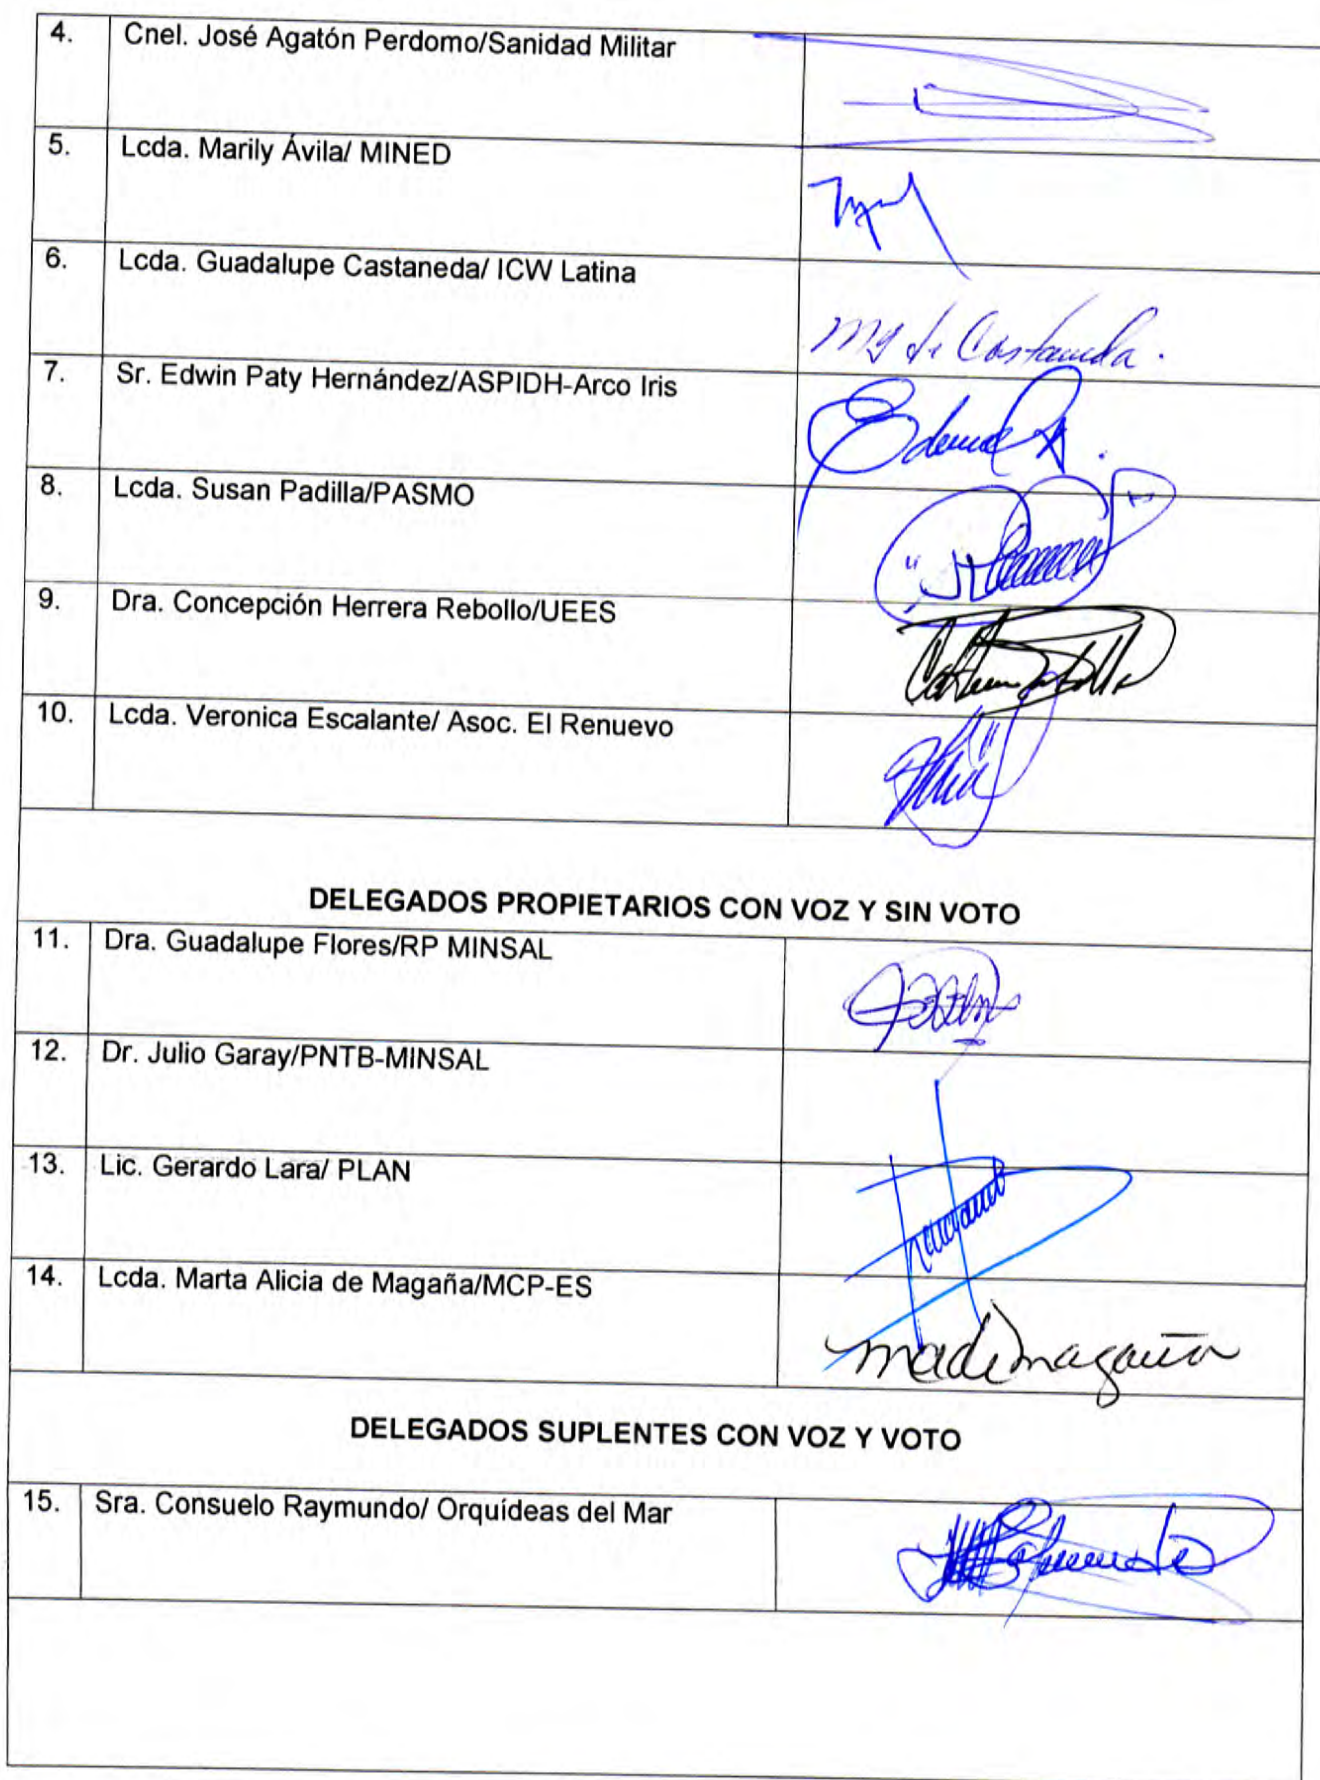 4. Cnel. José Agatón Perdomo/Sanidad Militar
5. Lcda. Marily Ávila/ MINED
6. Lcda. Guadalupe Castaneda/ ICW Latina
mg de Castaneda.
7. Sr. Edwin Paty Hernández/ASPIDH-Arco Iris
8. Lcda. Susan Padilla/PASMO
9. Dra. Concepción Herrera Rebollo/UEES
10. Lcda. Veronica Escalante/ Asoc. El Renuevo
DELEGADOS PROPIETARIOS CON VOZ Y SIN VOTO
11. Dra. Guadalupe Flores/RP MINSAL
12. Dr. Julio Garay/PNTB-MINSAL
13. Lic. Gerardo Lara/ PLAN
14. Lcda. Marta Alicia de Magaña/MCP-ES
mademagaña
DELEGADOS SUPLENTES CON VOZ Y VOTO
15. Sra. Consuelo Raymundo/ Orquídeas del Mar